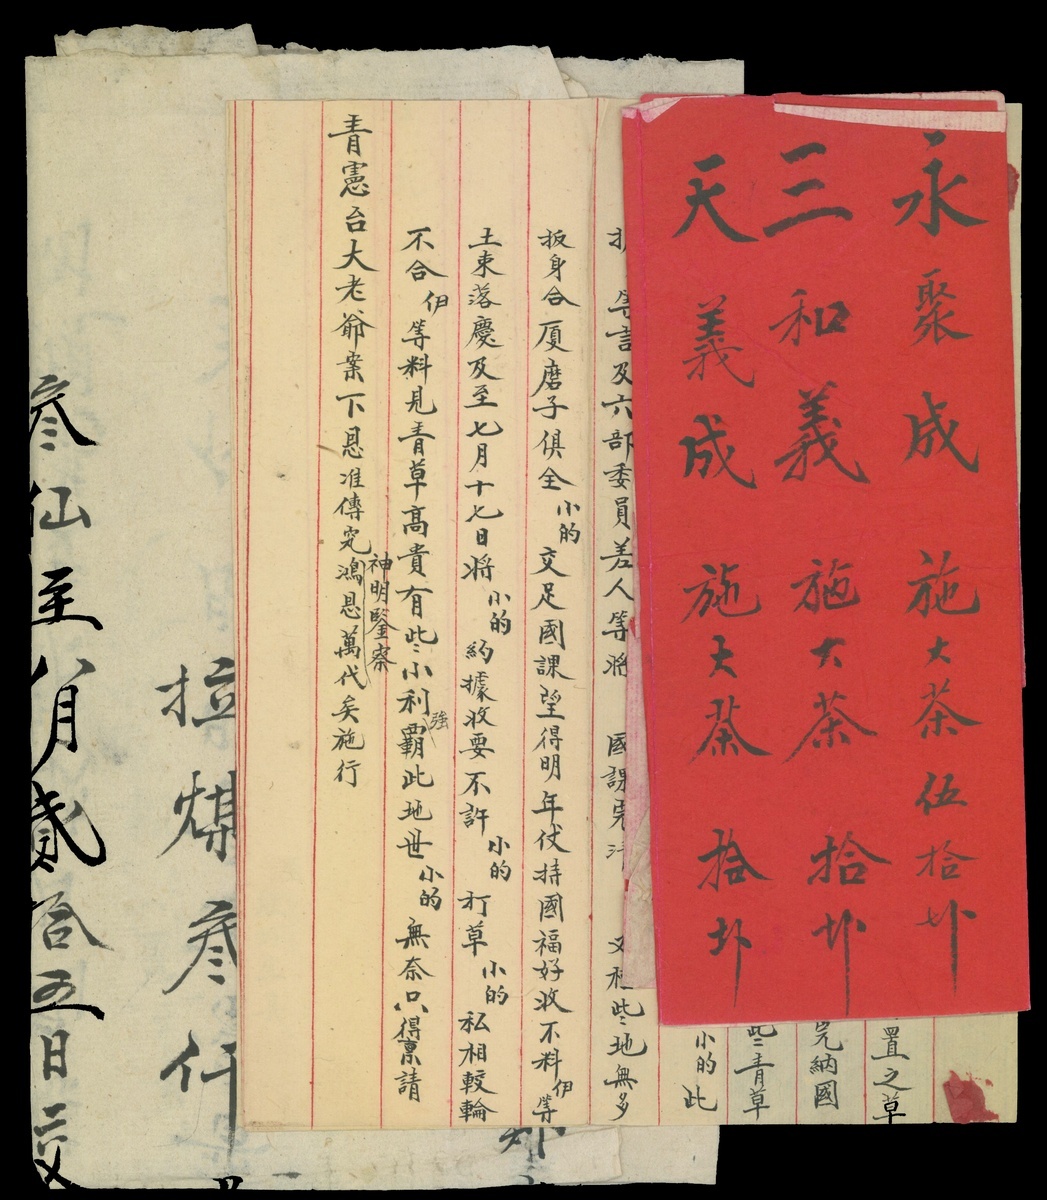 永聚成 施大茶伍拾卟
三和義 施大茶拾卟
天義成 施大茶拾卟
置之草
完納國
些青草
小的此
等言及六部委員差人等將 國課完 又種些地無多
扳身合厦磨子俱全小的交足國課望得明年仗持國福好收不料伊等
土束落慶及至七月十七日將小的約據收要不許小的打草小的私相較輪
不合伊等料見青草高貴有些小利強霸此地世小的無奈只得稟請
神明鑒察
青憲台大老爺案下恩准傳究鴻恩萬代矣施行
拉煤叁仟
叁仙至八月貳拾五日二